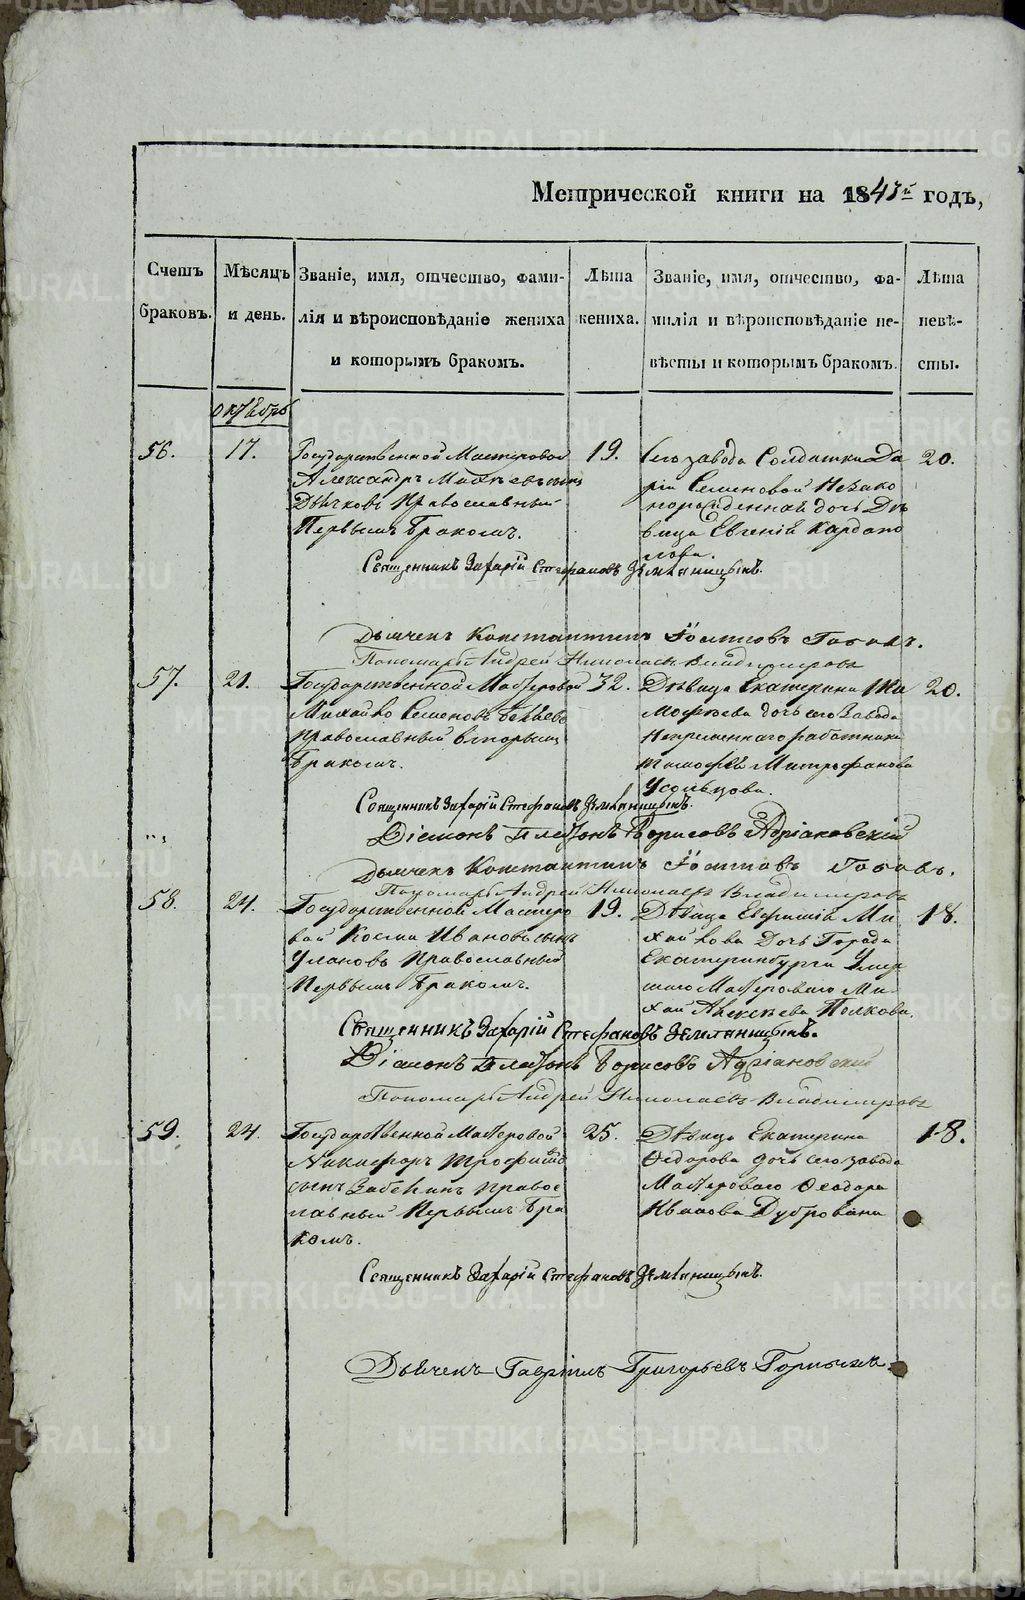 METRIKI.GASO-URAL.RU
Метрической книги на 1843й годъ,
Счетъ браковъ.
Мѣсяцъ и день.
Званіе, имя, отчество, фами-
лія и вѣроисповѣданіе жениха
и которымъ бракомъ.
Лѣта
жениха.
Званіе, имя, отчество, фа-
милія и вѣроисповѣданіе не-
вѣсты и которымъ бракомъ.
Лѣта
невѣ-
сты.
октебрь
56.
17.
Государственной Мастеровой
Александръ сынъ
православный
Первымъ Бракомъ.
19.
Сего завода Солдатки Да
рїи Семеновой Незако
норожденная дочь Дѣ
вица Евгенїя
20.
Священникъ Захарїй Стефановъ Земляницынъ.
Дьячекъ Константинъ Їоанновъ
Пономарь Андрей Николаевъ Владимировъ
57.
21.
Государственной Мастеровой
Михайло Семеновъ
православный вторымъ
Бракомъ.
32.
Дѣвица Екатерина Ти
мофѣева дочь сего завода
Непременнаго работника
Тимофѣя Митрофанова
Усольцова.
20.
Священникъ Захарїй Стефановъ Земляницынъ.
Дїаконъ Платонъ Борисовъ Адрїановскїй
Дьячекъ Константинъ Їоанновъ
Пономарь Андрей Николаевъ Владимировъ
58.
24.
Государственной Мастеро
вой Косма Ивановъ сынъ
Улановъ Православный
Первымъ Бракомъ.
19.
Дѣвица Евфимїя Ми
хайлова Дочь Города
Екатеринбурга Умер
шаго Мастероваго Ми
хаи Алексѣева Полкова.
18.
Священникъ Захарїй Стефановъ Земляницынъ.
Дїаконъ Платонъ Борисовъ Адрїановскїй
Пономарь Андрей Николаевъ Владимировъ
59.
24.
Государственной Мастеровой
Никифоръ Трофимовъ
сынъ Забелинъ право
славный Первымъ Бра
комъ.
25.
Дѣвица Екатерина
Ѳедорова дочь сего завода
Мастероваго Ѳеодора
Иванова Дубровина
18.
Священникъ Захарїй Стефановъ Земляницынъ.
Дьячекъ Гаврїилъ Григорьевъ